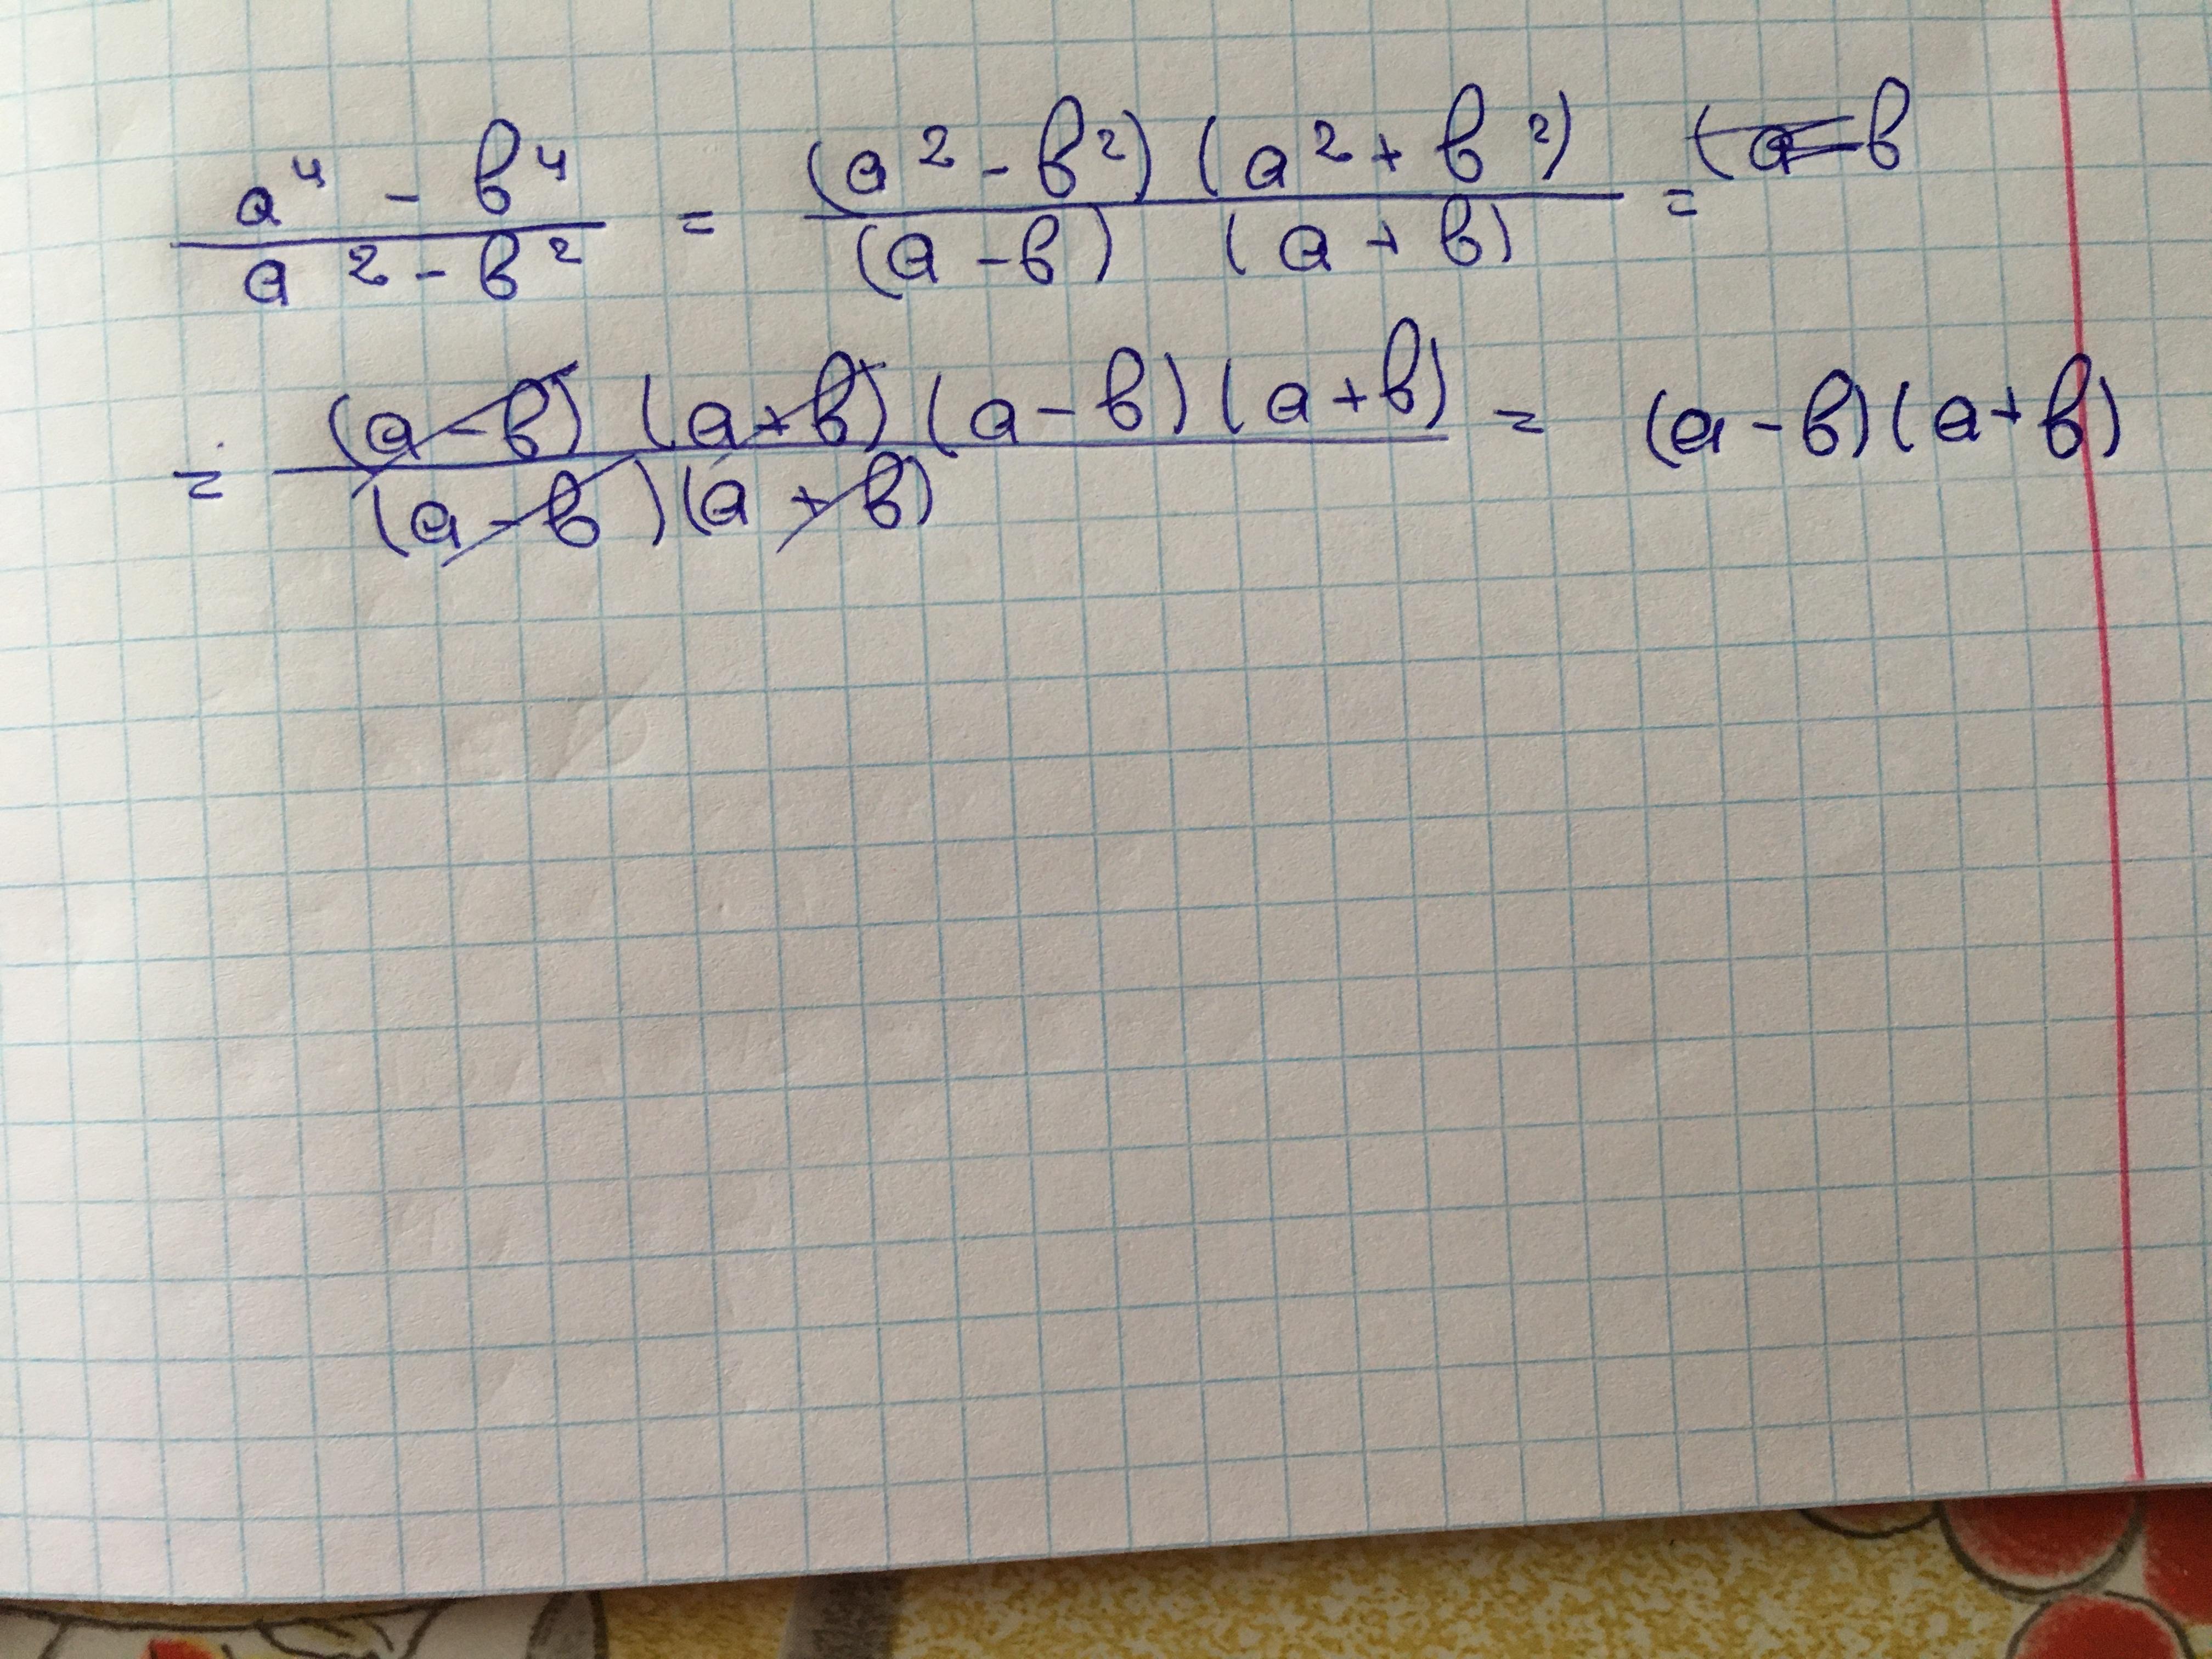 a⁴ - b⁴ / a² - b² = (a² - b²) (a² + b²) / (a - b) (a + b) =
= (a - b) (a + b) (a - b) (a + b) / (a - b) (a + b) = (a - b) (a + b)